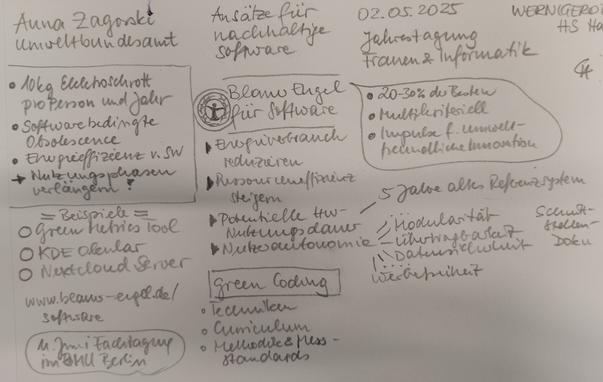 Anna Zagorski
Umweltbundesamt
Ansätze für
nachhaltige
Software
02.05.2025
Jahrestagung
Frauen & Informatik
WERNIGEROD
HS Ha
• 10kg Elektroschrott
pro Person und Jahr
• Softwarebedingte
Obsolescence
• Energieeffizienz v. SW
→ Nutzungsphasen
verlängern!
= Beispiele =
Green Metrics Tool
KDE Okular
Nextcloud Server
www.blauer-engel.de/
software
11. Juni Fachtagung
im BMU Berlin
Blauer Engel
für Software
Energieverbrauch
reduzieren
Ressourceneffizienz
steigern
Potentielle HW-
Nutzungsdauer
Nutzerautonomie
• 20-30% der Besten
• Multikriteriell
• Impulse f. umwelt-
freundliche Innovation
5 Jahre altes Referenzsystem
Modularität
Übertragbarkeit
Datensicherheit
Werbefreiheit
Schnitt-
stellen-
Doku
Green Coding
• Techniken
• Curriculum
• Methodik & Mess-
standards